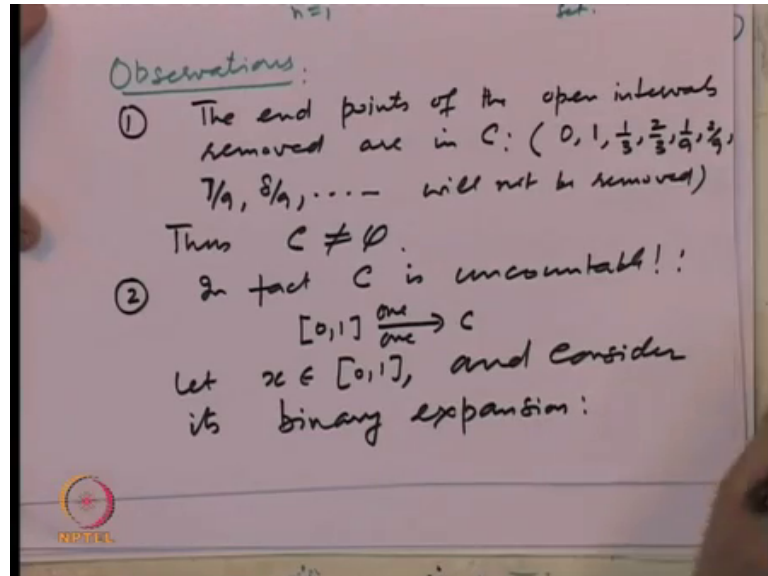 n=1 set.
Observations:
① The end points of the open intervals
removed are in C: ( 0, 1, 1/3, 2/3, 1/9, 2/9,
7/9, 8/9, ..... will not be removed)
Thus C ≠ φ.
② In fact C is uncountable!!
[0,1] one/one → C
Let x ∈ [0,1], and consider
its binary expansion:
NPTEL